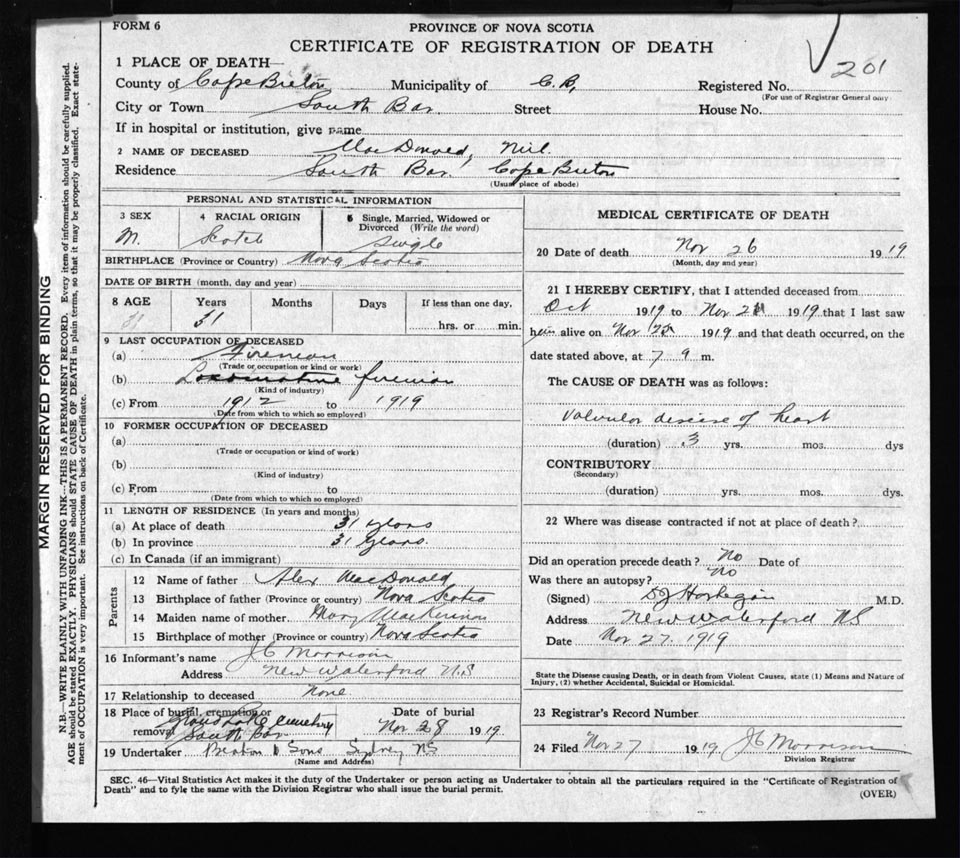 FORM 6
PROVINCE OF NOVA SCOTIA
CERTIFICATE OF REGISTRATION OF DEATH
201
1 PLACE OF DEATH—
County of Cape Breton Municipality of C.B, Registered No.
(For use of Registrar General only
City or Town South Bar. Street House No.
If in hospital or institution, give name
2 NAME OF DECEASED MacDonald, Neil.
Residence South Bar, Cape Breton
(Usual place of abode)
PERSONAL AND STATISTICAL INFORMATION
3 SEX 4 RACIAL ORIGIN 5 Single, Married, Widowed or
Divorced (Write the word)
M. Scotch Single
BIRTHPLACE (Province or Country) Nova Scotia
DATE OF BIRTH (month, day and year)
8 AGE Years Months Days If less than one day,
31 31 hrs. or min.
9 LAST OCCUPATION OF DECEASED
(a) Fireman
(Trade or occupation or kind or work)
(b) Locomotive fireman
(Kind of industry)
(c) From 1912 to 1919
(Date from which to which so employed)
10 FORMER OCCUPATION OF DECEASED
(a)
(Trade or occupation or kind of work)
(b)
(Kind of industry)
(c) From to
(Date from which to which so employed)
11 LENGTH OF RESIDENCE (In years and months)
(a) At place of death 31 years
(b) In province 31 years.
(c) In Canada (if an immigrant)
Parents
12 Name of father Alex MacDonald
13 Birthplace of father (Province or country) Nova Scotia
14 Maiden name of mother Mary MacKinnon
15 Birthplace of mother (Province or country) Nova Scotia
16 Informant's name J C Morrison
Address New Waterford N.S
17 Relationship to deceased None
18 Place of burial, cremation or
removal Cemetery
South Bar. Date of burial
Nov 28 1919.
19 Undertaker Beaton & Sons Sydney NS
(Name and Address)
MEDICAL CERTIFICATE OF DEATH
20 Date of death Nov 26 1919
(Month, day and year)
21 I HEREBY CERTIFY, that I attended deceased from
Oct 1919 to Nov 1919 that I last saw
him alive on Nov 25 1919 and that death occurred, on the
date stated above, at 7 9 m.
The CAUSE OF DEATH was as follows:
Valvular disease of heart
(duration) 3 yrs. mos. dys
CONTRIBUTORY
(Secondary)
(duration) yrs. mos. dys.
22 Where was disease contracted if not at place of death?
Did an operation precede death? No Date of
Was there an autopsy? No
(Signed) M.D.
Address New Waterford NS
Date Nov 27. 1919
State the Disease causing Death, or in death from Violent Causes, state (1) Means and Nature of
Injury, (2) whether Accidental, Suicidal or Homicidal.
23 Registrar's Record Number
24 Filed Nov 27 1919. J C Morrison
Division Registrar
SEC. 46—Vital Statistics Act makes it the duty of the Undertaker or person acting as Undertaker to obtain all the particulars required in the "Certificate of Registration of
Death" and to fyle the same with the Division Registrar who shall issue the burial permit.
(OVER)
MARGIN RESERVED FOR BINDING
N.B.—WRITE PLAINLY, WITH UNFADING INK—THIS IS A PERMANENT RECORD. Every item of information should be carefully supplied.
AGE should be stated EXACTLY. PHYSICIANS should STATE CAUSE OF DEATH in plain terms, so that it may be properly classified. Exact state-
ment of OCCUPATION is very important. See instructions on back of Certificate.